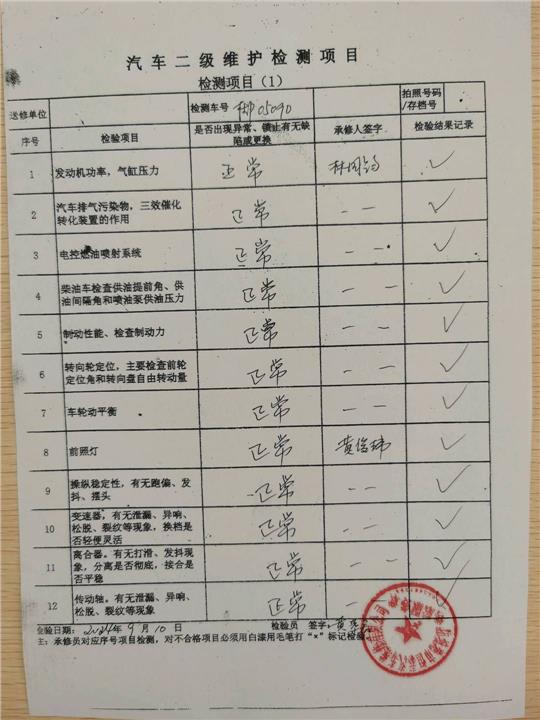 汽车二级维护检测项目
检测项目（1）
送修单位 检测车号 05090 拍照号码/存档号
序号 检验项目 是否出现异常、锁止有无缺陷或更换 承修人签字 检验结果记录
1 发动机功率，气缸压力 正常 ✓
2 汽车排气污染物，三效催化转化装置的作用 正常 — — ✓
3 电控燃油喷射系统 正常 — — ✓
4 柴油车检查供油提前角、供油间隔角和喷油泵供油压力 正常 — — ✓
5 制动性能、检查制动力 正常 — — ✓
6 转向轮定位，主要检查前轮定位角和转向盘自由转动量 正常 — — ✓
7 车轮动平衡 正常 — — ✓
8 前照灯 正常 黄俊玮 ✓
9 操纵稳定性，有无跑偏、发抖、摆头 正常 — — ✓
10 变速器，有无泄漏、异响、松脱、裂纹等现象，换档是否轻便灵活 正常 — — ✓
11 离合器。有无打滑、发抖现象，分离是否彻底，接合是否平稳 正常 — — ✓
12 传动轴。有无泄漏、异响、松脱、裂纹等现象 正常 — ✓
验日期：2024年9月10日 检验员 签字：黄
主：承修员对应序号项目检测，对不合格项目必须用白漆用毛笔打“×”标记检验